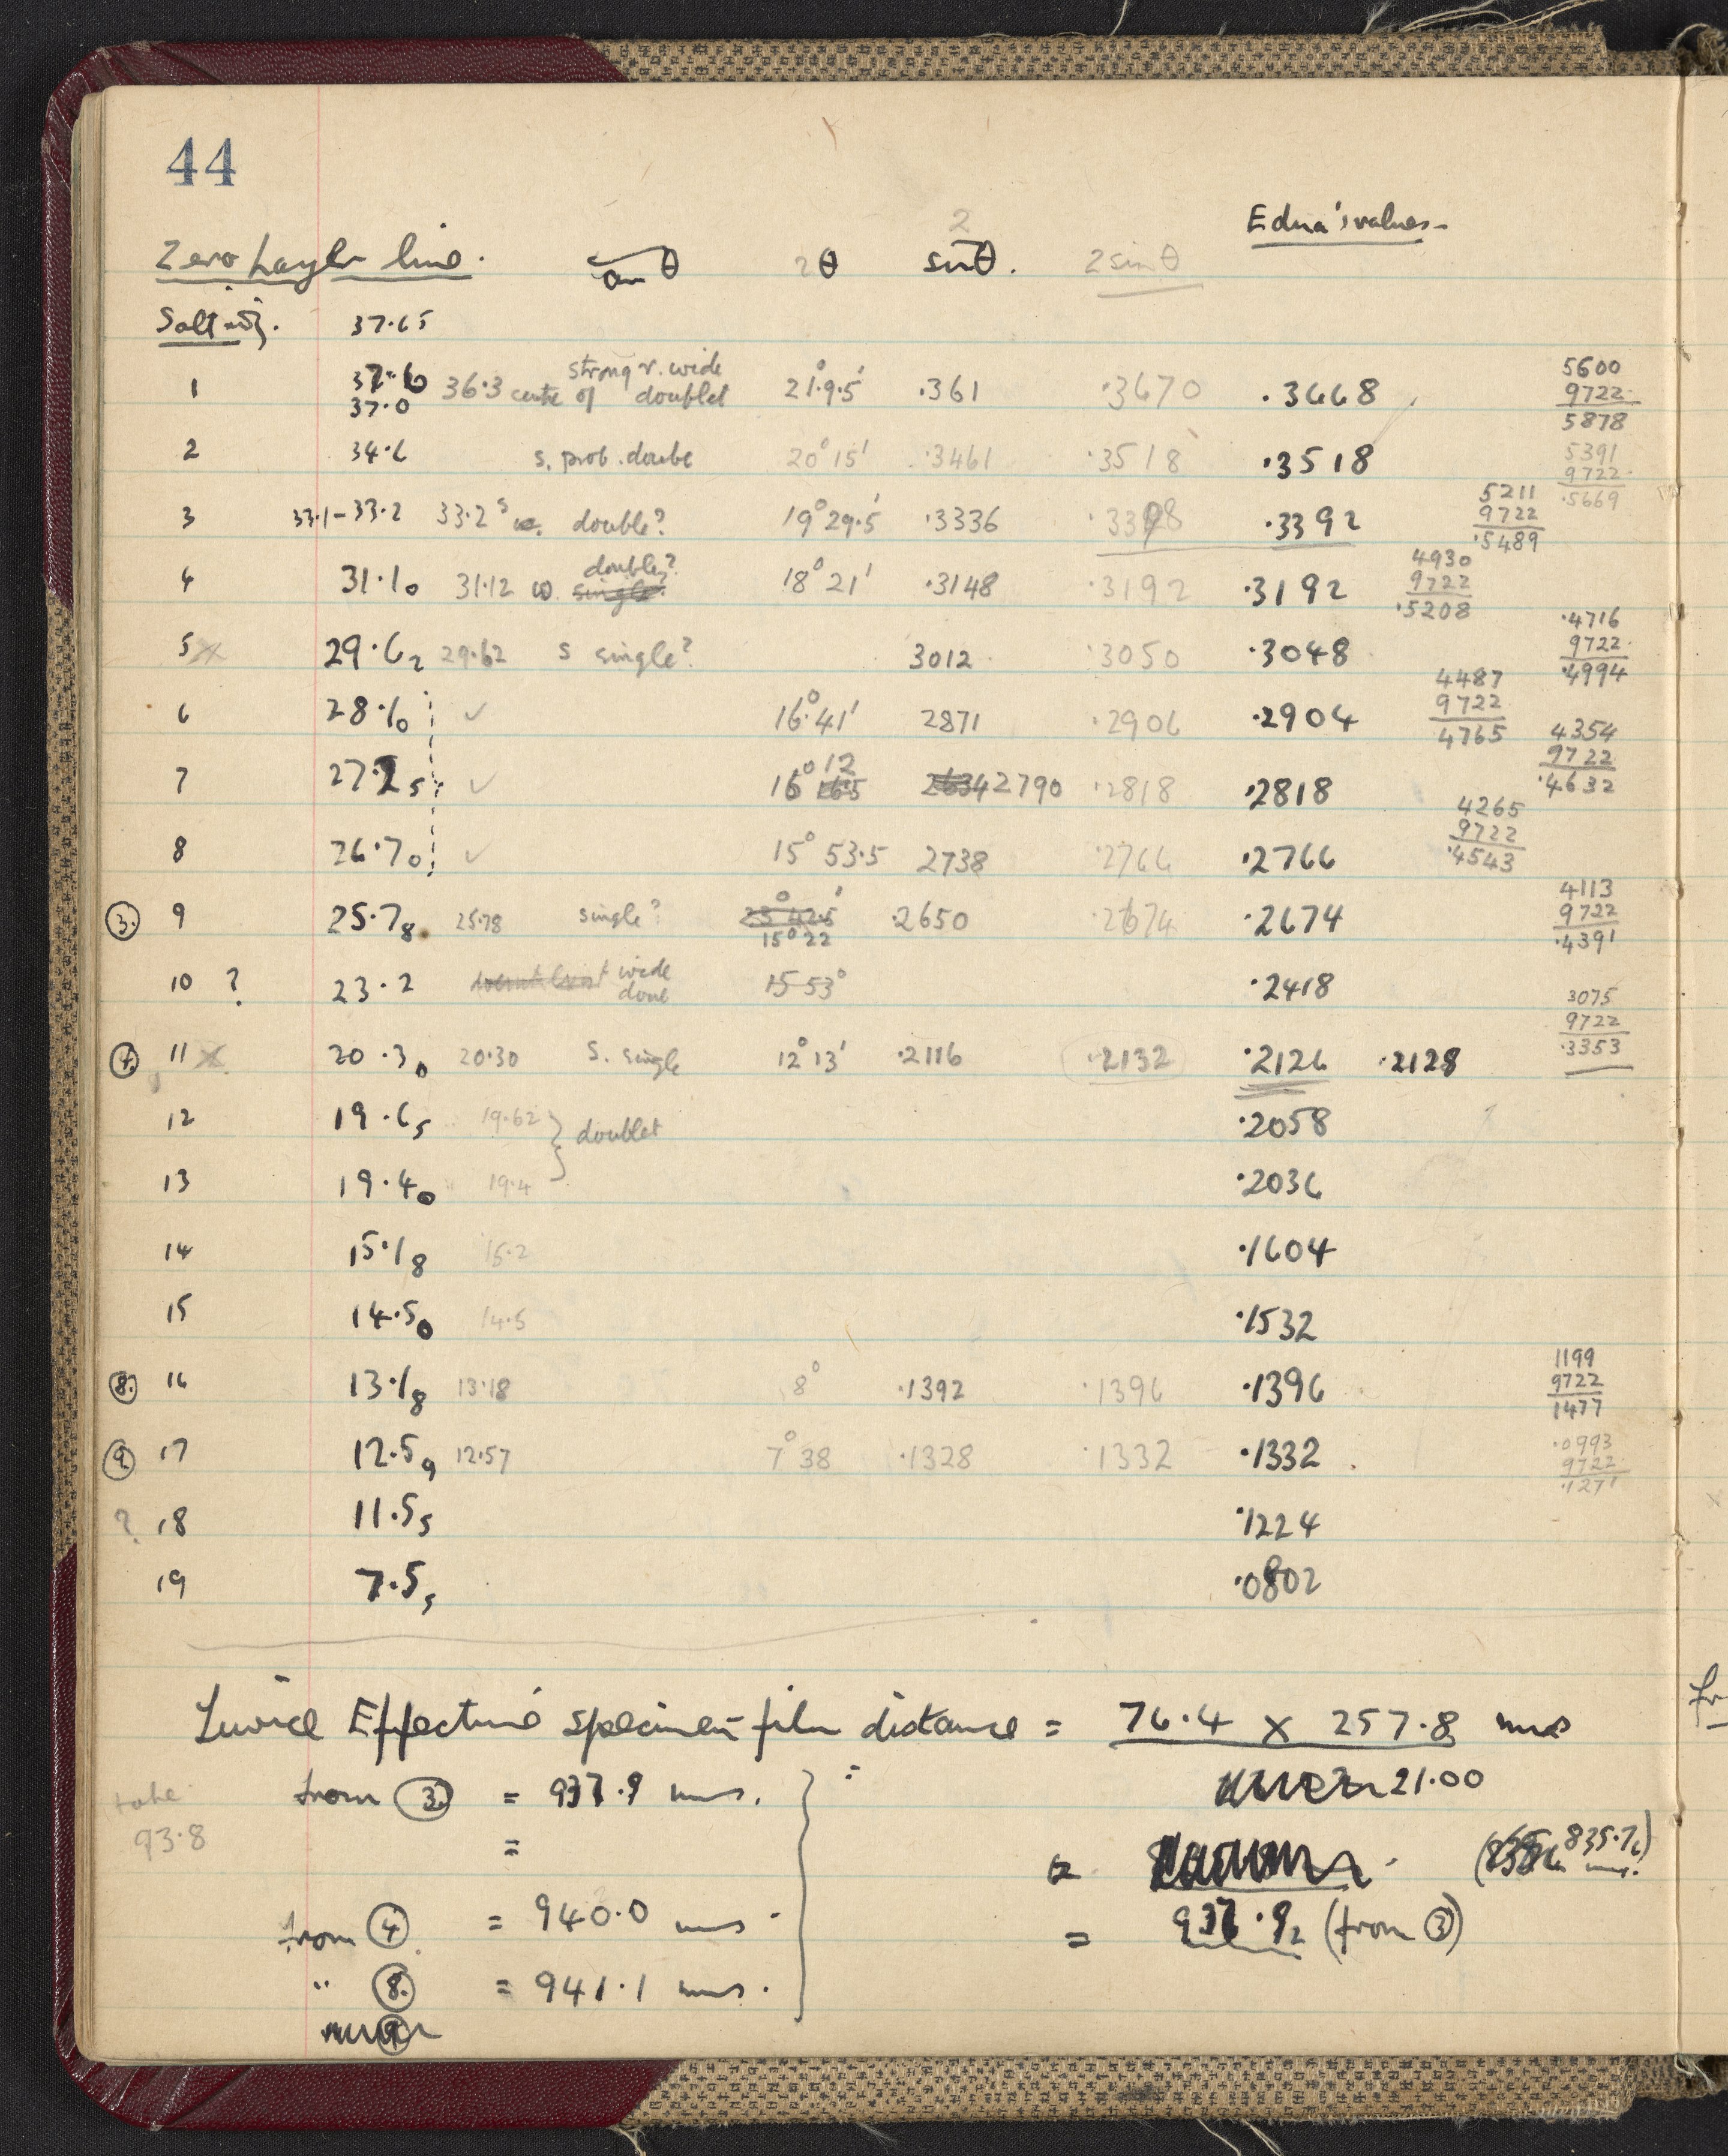 44
Edna's values.
Zero Layer line. tan θ 2θ sin²θ. 2 sin θ
Salt 37.65
1 37.6 36.3 centre of strong v. wide doublet 21°.9.5' .361 .3670 .3668 5600
37.0 9722
5878
2 34.6 s. prob. double 20°15' .3461 .3518 .3518 5391
9722
.5669
3 33.1-33.2 33.2 s double? 19°29.5' .3336 .3398 .3392 5211
9722
.5489
4 31.10 31.12 w. single? double? 18°21' .3148 .3192 .3192 4930
9722
.5208
5 x 29.62 29.62 s single? 3012 .3050 .3048 .4716
9722
.4994
6 28.10 ✓ 16°.41' 2871 .2906 .2904 4487
9722
4765
7 27.25 ✓ 16° 165 12 2634 2790 .2818 .2818 4354
9722
.4632
8 26.70 ✓ 15° 53.5 2738 .2766 .2766 4265
9722
.4543
③ 9 25.78 25.78 single? 25°42.5' .2650 .2674 .2674 4113
15°22 9722
.4391
10 ? 23.2 wide 15 53° .2418
④ 11 x 20.30 20.30 s. single 12°13' .2116 .2132 .2126 .2128 3075
9722
.3353
12 19.65 19.62 } doublet .2058
13 19.40 19.4 .2036
14 15.18 15.2 .1604
15 14.50 14.5 .1532
⑧ 16 13.18 13.18 8° .1392 .1396 .1396 1199
9722
1477
⑨ 17 12.59 12.57 7°38 .1328 .1332 .1332 .0993
9722
.1271
? 18 11.55 .1224
19 7.55 .0802
Twice Effective specimen-film distance = 76.4 x 257.8 mms
21.00
take from ③ = 937.9 mms.
93.8 = (835.76 mms.)
= 937.92 (from ③)
from ④ = 940.0 mms.
" ⑧ = 941.1 mms.
⑨